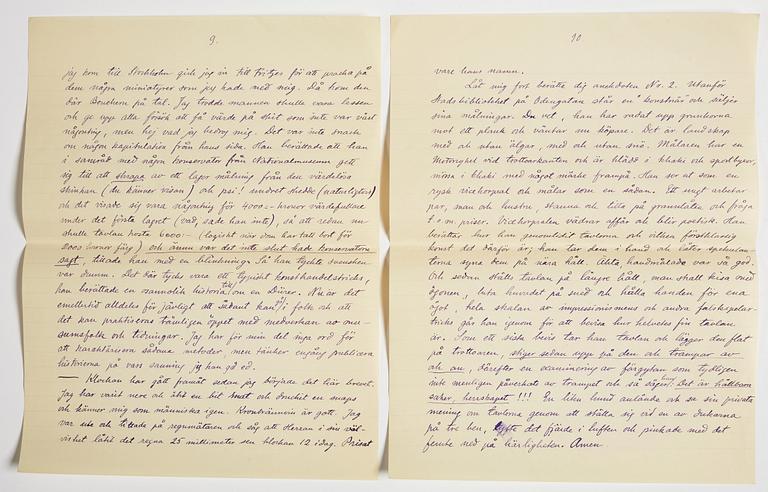 9.
jag kom till Stockholm gick jag in till Fritzes för att pracka på
dem några miniatyrer som jag hade med mig. Då kom den
där Bouchern på tal. Jag trodde mannen skulle vara ledsen
och ge upp alla försök att få värde på skit som inte var värt
någonting, men hej vad jag bedrog mig. Det var inte snack
om någon kapitulation från hans sida. Han berättade att han
i samråd med någon konservator från Nationalmuseum gett
sig till att skrapa av ett lager målning från den värdelösa
skinkan (du känner visan) och psi! undret skedde (naturligtvis)
och det visade sig vara någonting för 4000:- kronor värdefullare
under det första lagret (vad, sade han inte), så att redan nu
skulle tavlan kosta 6000:- (logiskt när den har tatt bort för
2000 kronor färg) och ännu var det inte slut hade konservatorn
sagt, tillade han med en blinkning. Så han tyckte svensken
var dum. Det där tycks vara ett typiskt konsthandelstrick!
han berättade en sannolik historia till om en Dürer. Nu är det
emellertid alldeles för jävligt att sådant kan i folk och att
det kan praktiseras tämligen öppet med medverkan av mu-
seumsfolk och tidningar. Jag har för min del inga ord för
att karaktärisera sådana metoder, men tänker engång publicera
historierna på vers sanning jag kan gå ed.
— Klockan har gått framåt sedan jag började det här brevet.
Jag har varit nere och ätit en bit mat och druckit en snaps
och känner mig som människa igen. Kronbrännvin är gott. Jag
var ute och tittade på regnmätaren och såg att Herran i sin väl-
vishet låtit det regna 25 millimeter sen klockan 12 idag. Prisat
10
vare hans namn.
Låt mig fort berätta dig anekdoten Nr. 2. Utanför
Stadsbiblioteket på Odengatan står en konstnär och säljer
sina målningar. Du vet, han har radat upp grunkorna
mot ett plank och väntar nu köpare. Det är landskap
med och utan älgar, med och utan snö. Målaren har en
Motorcykel vid trottoarkanten och är klädd i khaki och sportbyxor,
mössa i khaki med något märke frampå. Han ser ut som en
rysk vicekorpral och målar som en sådan. Ett ungt arbetar
par, man och hustru, stanna och titta på granaten och fråga
t o m. priser. Vicekorpralen vädrar affär och blir poetisk. Han
berättar hur han genomlidit tavlorna och vilken förstklassig
konst det därför är; han tar dem i hand och låter spekulan-
terna syna dem på nära håll. Äkta handmålade var så god.
Och sedan ställs tavlan på längre håll, man skall kisa med
ögonen, luta huvudet på sned och hålla handen för ena
ögat, hela skalan av impressionismens och andra falskspelar-
tricks går han genom för att bevisa hur helvetes fin tavlan
är. Som ett sista bevis tar han tavlan och lägger den flat
på trottoaren, stiger sedan upp på den och trampar av
och an, därefter en examinering av färgytan som tydligen
inte menligen påverkats av trampet och så säger han: Det är hållbara
saker, herrskapet!!! En liten hund anlände och sa sin privata
mening om tavlorna genom att ställa sig vid en av dukarna
på tre ben, lyfte det fjärde i luften och pinkade med det
femte ned på härligheten. Amen.